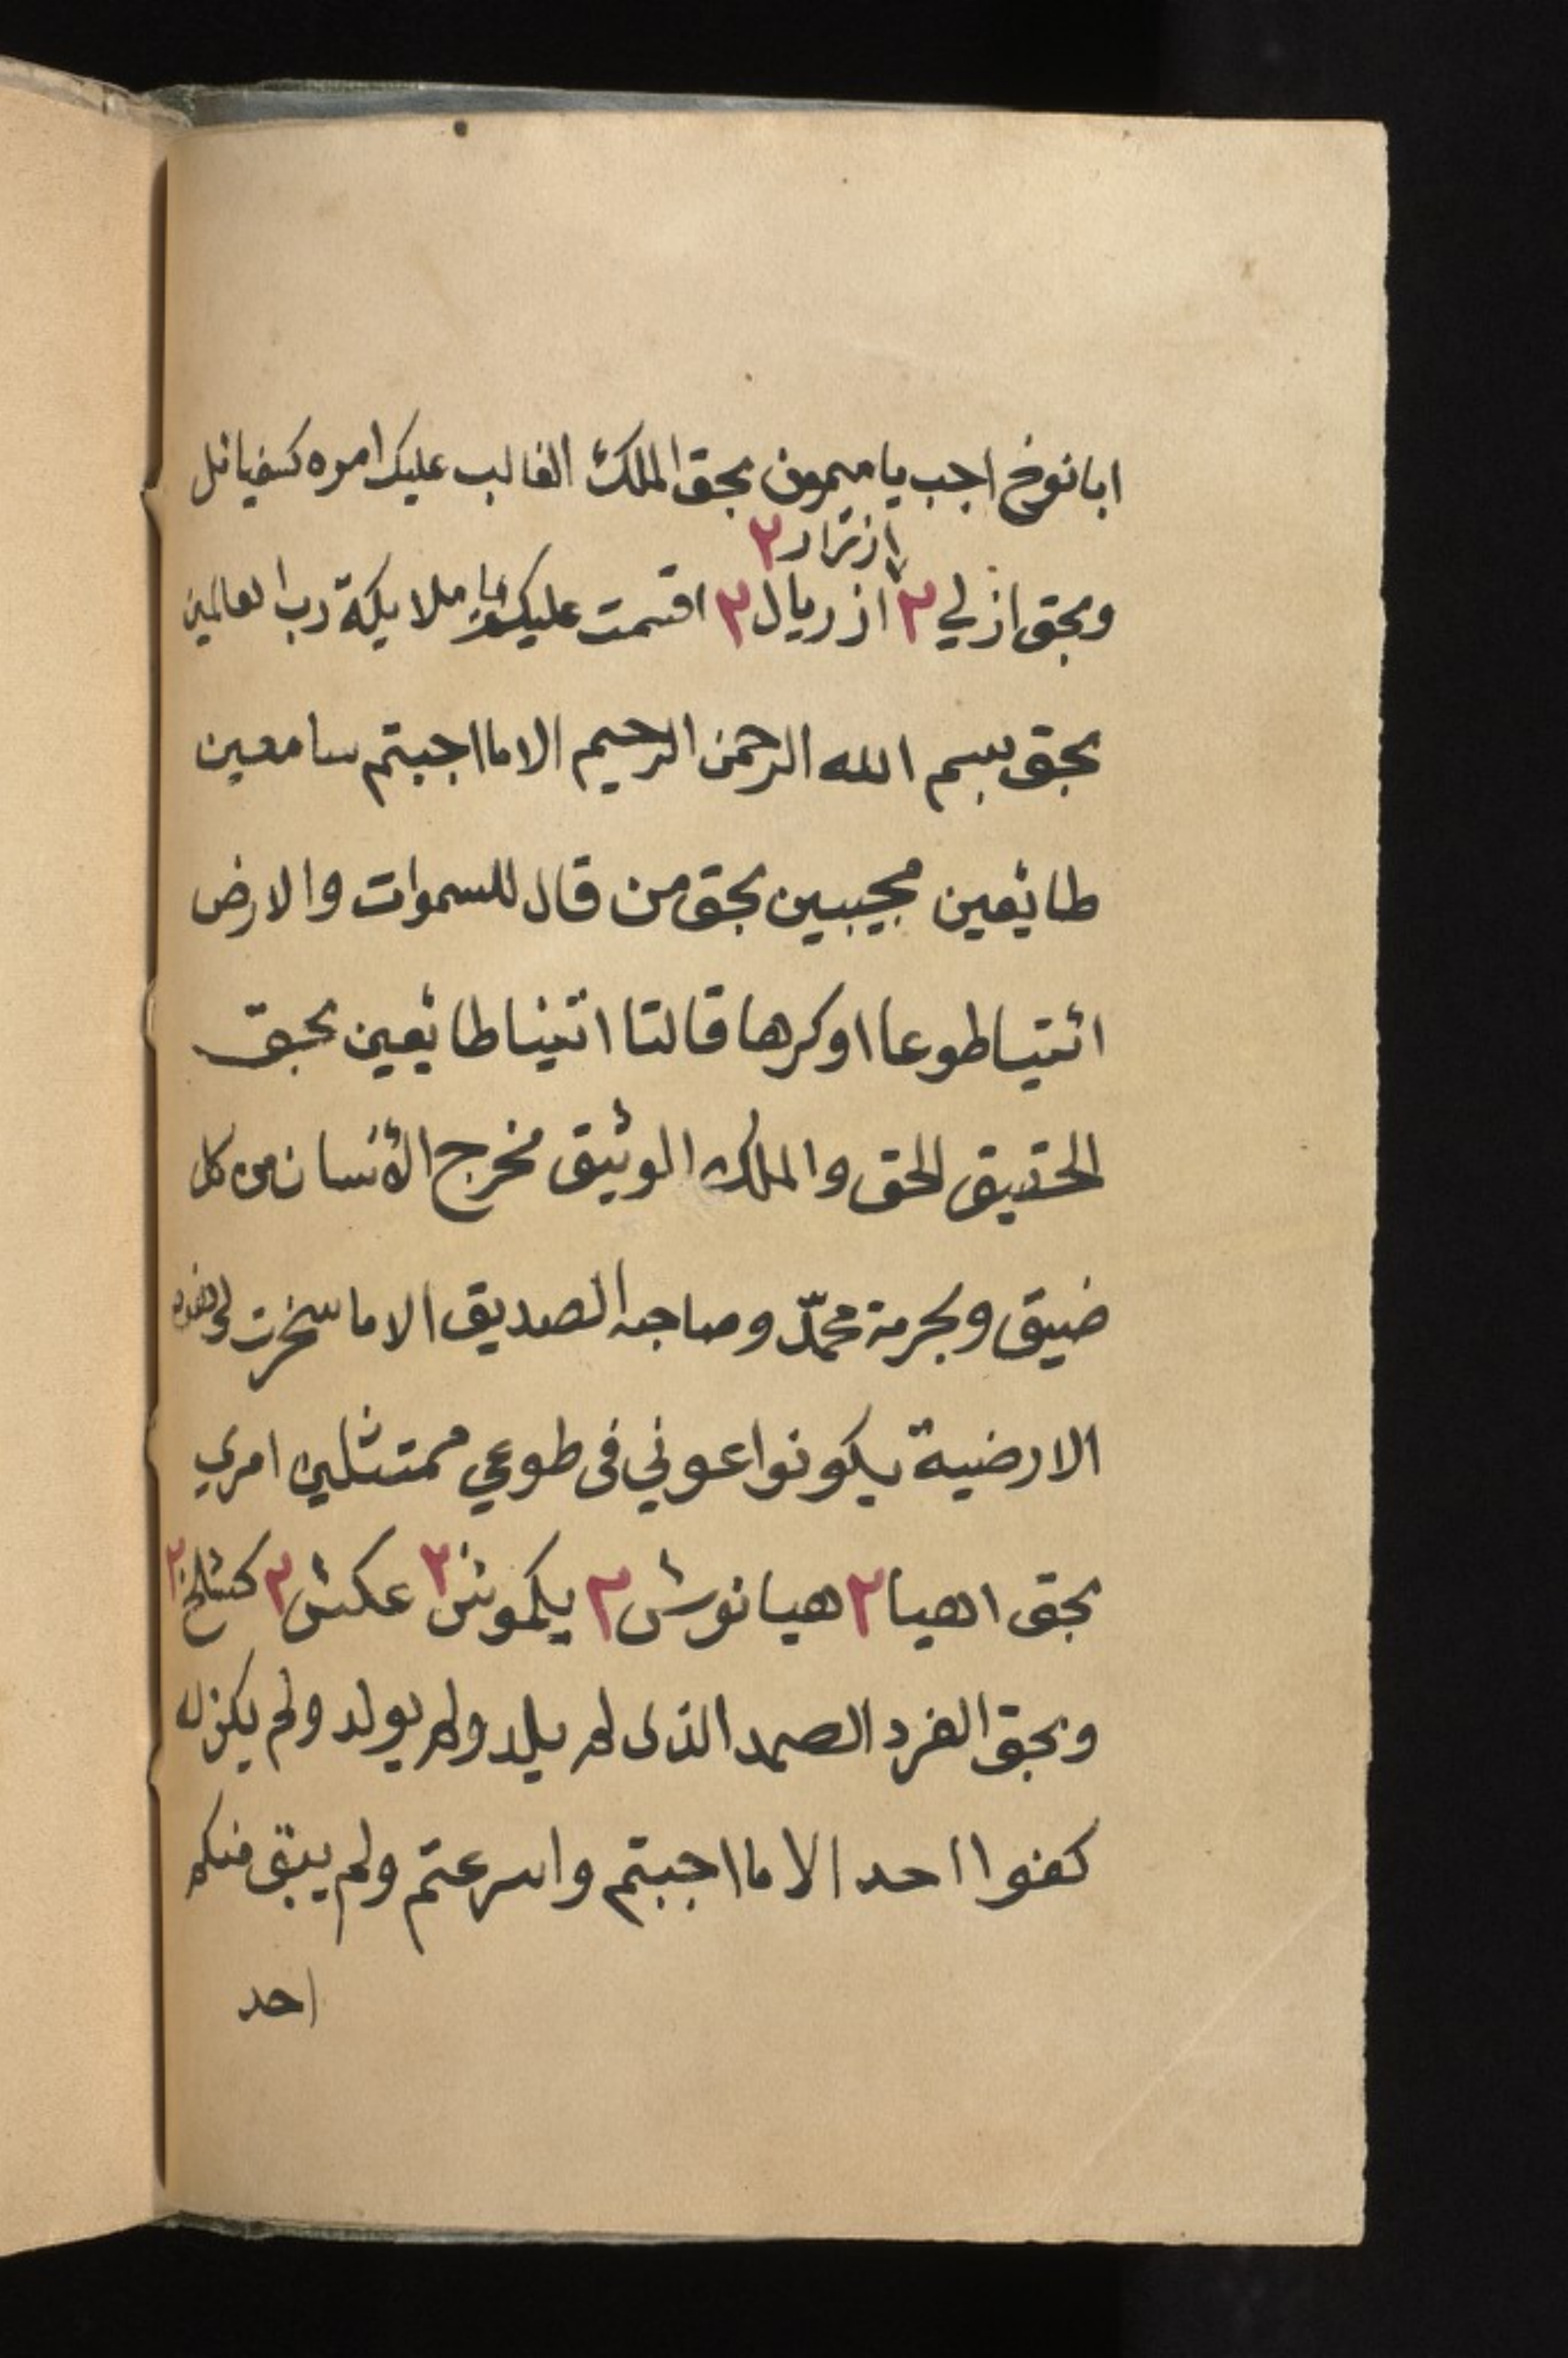 ابا نوخ اجب يا ميمون بحق الملك الغالب عليك امره كسفيائل
ازتراد ٢
وبحق ازلي ٢ ازريال ٢ اقسمت عليكم يا ملايكة رب العالمين
بحق بسم الله الرحمن الرحيم الا ما اجبتم سامعين
طائعين مجيبين بحق من قال للسموات والارض
ائتيا طوعا او كرها قالتا اتينا طائعين بحق
الحقيق الحق والملك الوثيق مخرج الأنسان من كل
ضيق وبحرمة محمّد وصاحبه الصديق الا ما سخرت لي هذه
الارضية يكونوا عوني في طوعي ممتثلين امري
بحق اهيا ٢ هيانورش ٢ يلموش ٢ عكش ٢ كشلخ ٢
وبحق الفرد الصمد الذي لم يلد ولم يولد ولم يكن له
كفوا احد الا ما اجبتم واسرعتم ولم يبق منكم
احد